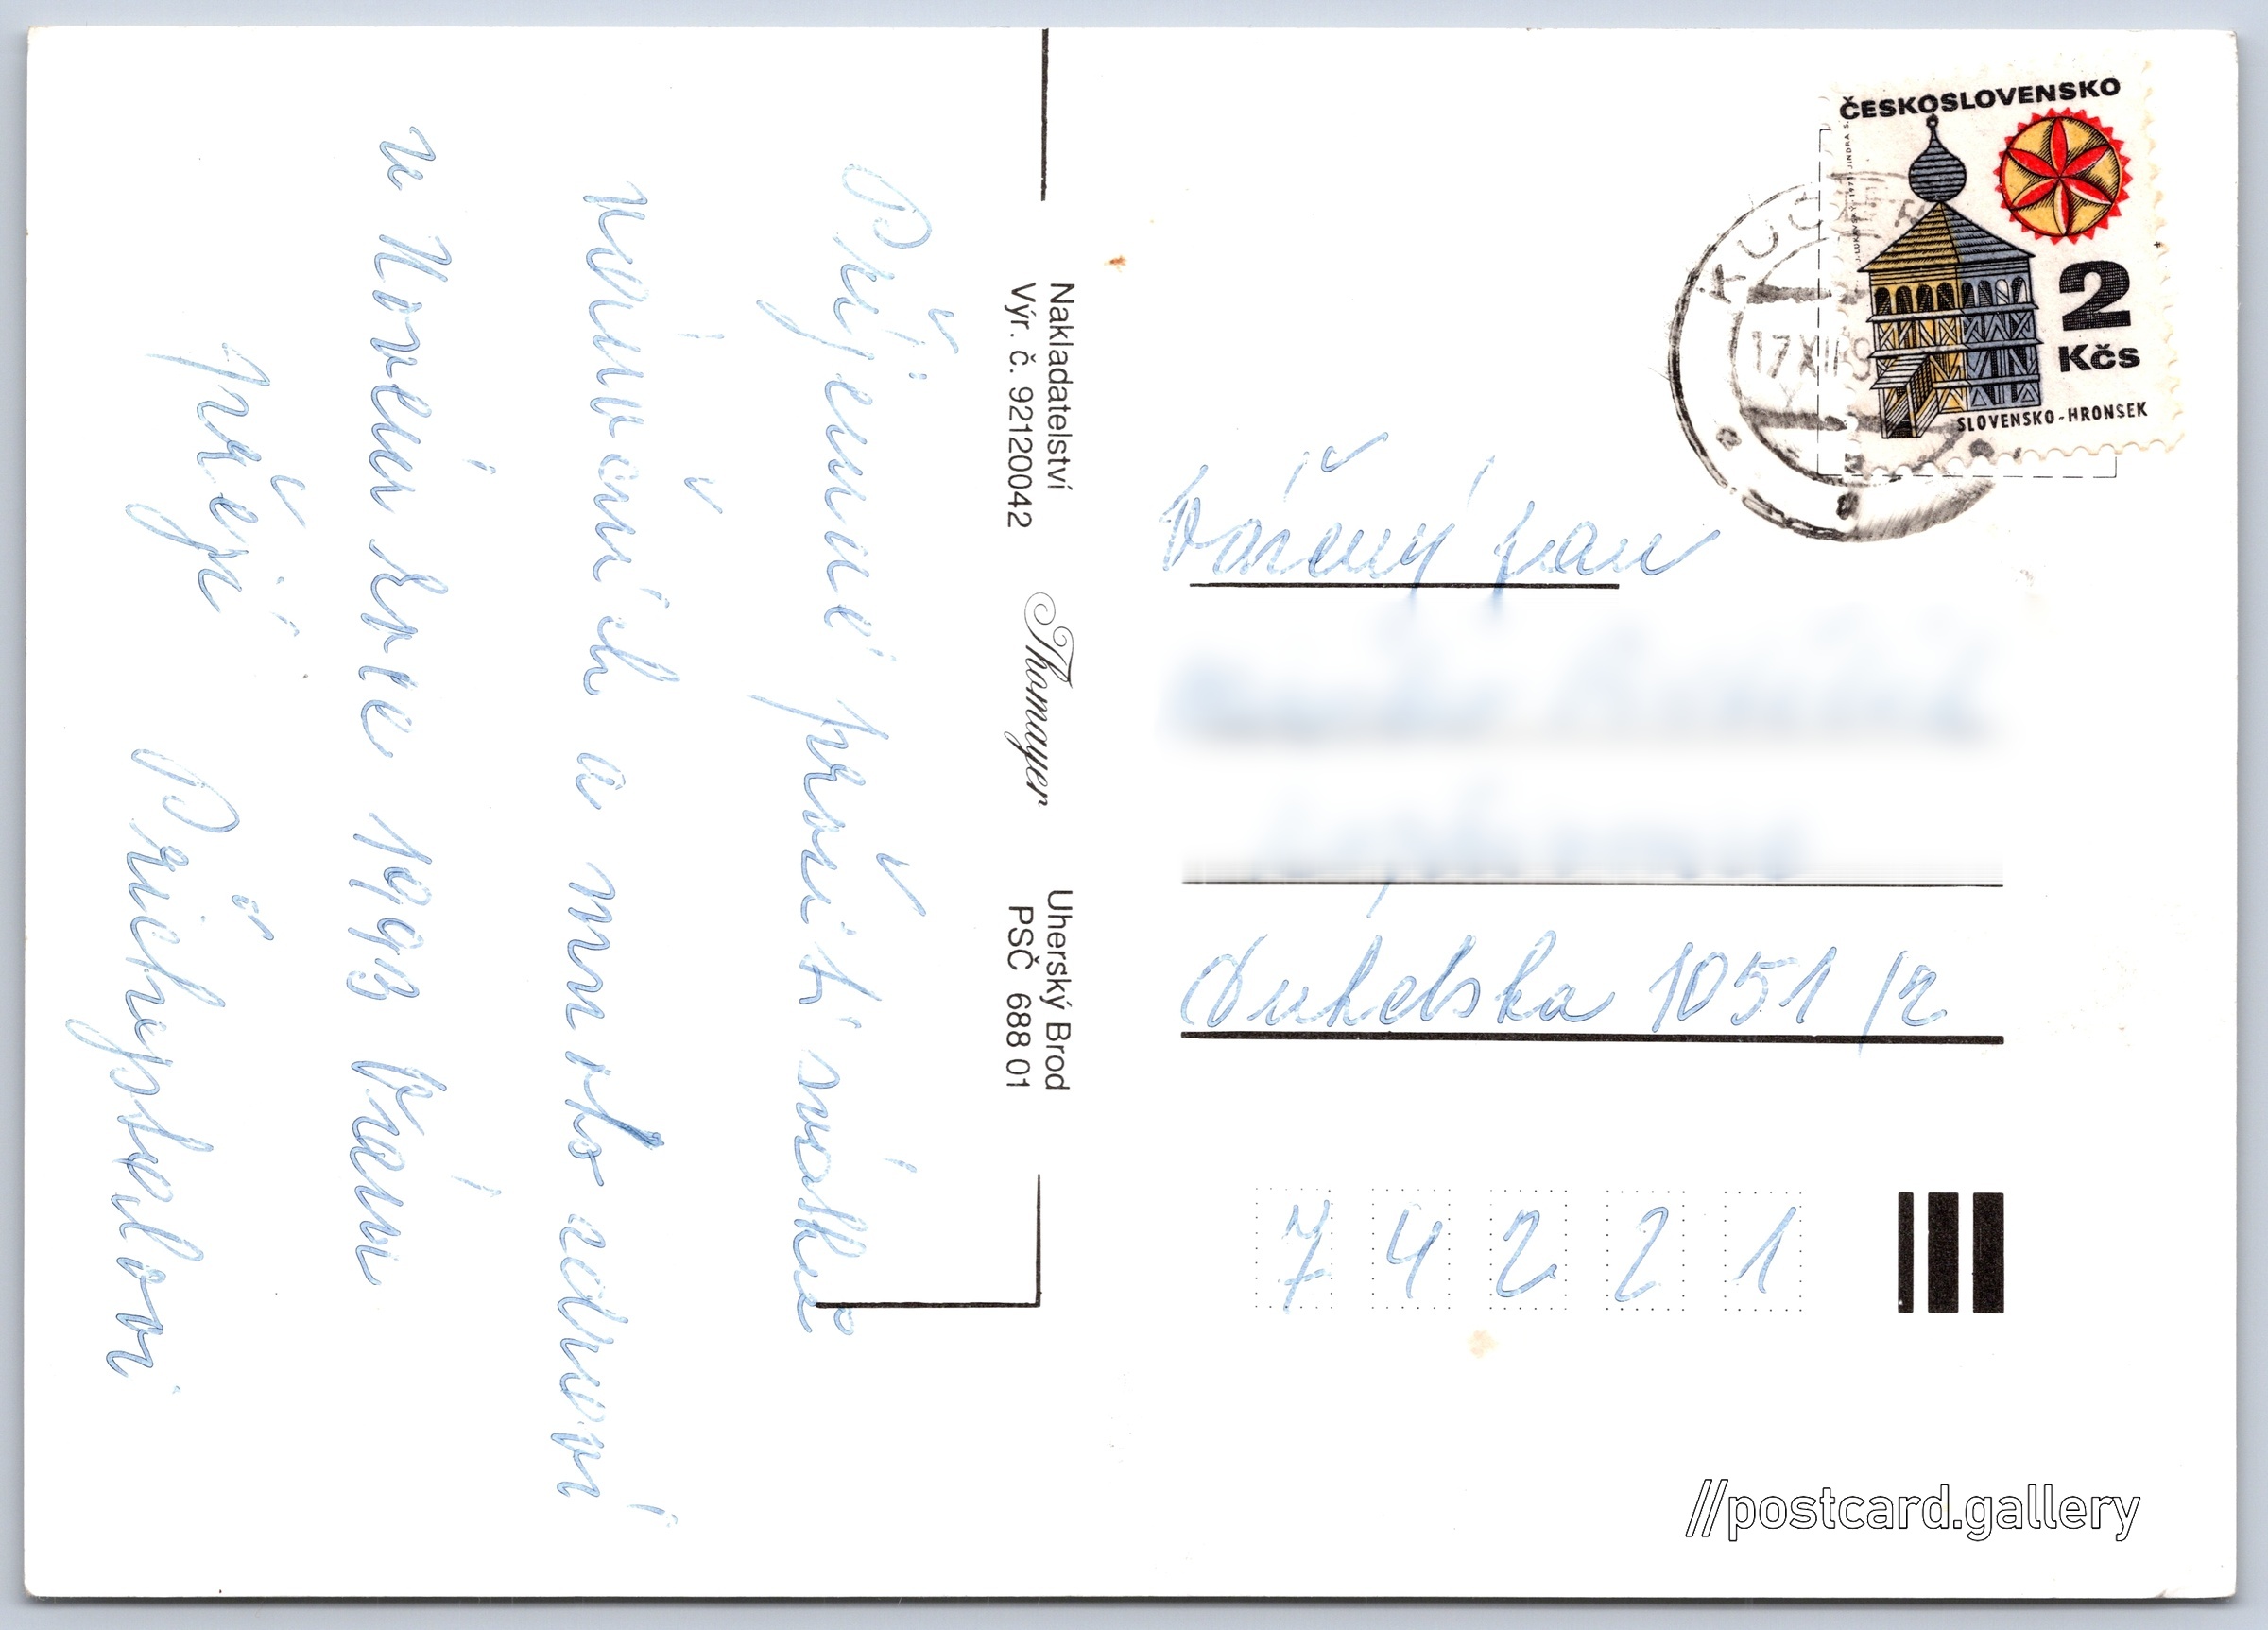 Příjemné prožití svátků
vánočních a mnoho zdraví
v Novém roce 1993 Vám
přejí
Přichystalovi
Nakladatelství
Výr. č. 92120042
Thomayer
Uherský Brod
PSČ 688 01
ČESKOSLOVENSKO
2
Kčs
SLOVENSKO-HRONSEK
17 XII
Vážený pan
Dukelska 1051/2
74221
//postcard.gallery